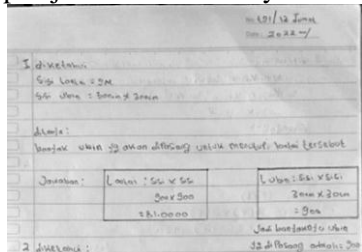 No: 191/12 Juni
Date: 2022
I diketahui
Sisi lantai = 9m
Sisi ubin = 30cm x 30cm
ditanya:
banyak ubin yg akan dipasang untuk menutup lantai tersebut
Jawaban:
L lantai : sisi x sisi
900 x 900
= 810000
L ubin : sisi x sisi
30cm x 30cm
= 900
Jadi banyaknya ubin
yg dipasang adalah: 900
2 diketahui :